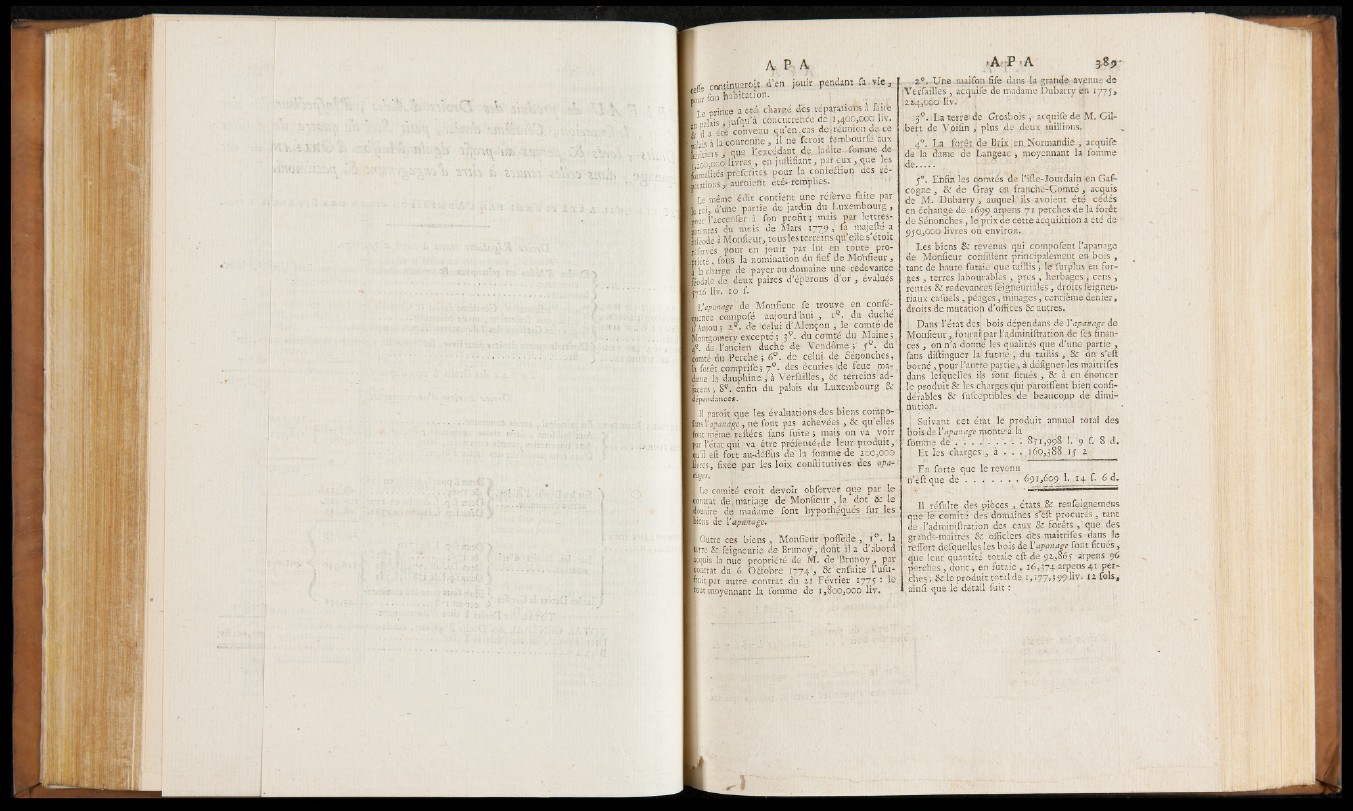 A P A
continueroit d'en jouir pendant sa vie,
pour son habitation.
Le prince a été chargé des réparations à faire
palais, jusqu'à concurrence de 1,400,000 liv.
il a été convenu qu'en cas de réunion de ce
à la couronne, il ne seroit remboursé aux
que l'excédant de ladite somme de
livres, en justifiant, par eux, que les
prescrites pour la confection des ré-
auroient été remplies.
Le même édit contient une réserve faite par
d'une partie du jardin du Luxembourg,
l'accenser à son profit; mais par lettres-
du mois de Mars 1779, sa majesté a
à Monsieur, tous les terreins qu'elle s'étoit
pour en jouir par lui en toute pro-
sous la nomination du fief de Monsieur,
à la charge de payer au domaine une redevance
de deux paires d'éperons d'or, évalués
liv. 10 s.
L'apanage de Monsieur se trouve en consé-
composé aujourd'hui, 1°. du duché
d'Anjou; 2°. de celui d'Alençon, le comté de
Montgomery excepté; 3°. du comté du Maine;
4°. de l'ancien duché de Vendôme; 5°. du
comté du Perche; 6°. de celui de Senonches,
la forêt comprise; 7°. des écuries de feue ma-
dame la dauphine, à Versailles, & terreins ad-
8°. enfin du palais du Luxembourg &
dépendances.
Il paroît que les évaluations des biens compo-
l'apanage, ne sont pas achevées, & qu'elles
sont même restées sans suite; mais on va voir
par l'état qui va être présenté de leur produit,
qu'il est fort au-dessus de la somme de 200,000
livres, fixée par les loix constitutives des apa-
nages.
Le comité croit devoir observer que par le
contrat de mariage de Monsieur, la dot & le
douaire de madame sont hypothéqués sur les
biens de l'apanage.
Outre ces biens, Monsieur possède, 1°. la
terre & seigneurie de Brunoy, dont il a d'abord
acquis la nue propriété de M. de Brunoy, par
contrat du 6 Octobre 1774, & ensuite l'usu-
fruit par autre contrat du 21 Février 1775: le
tout moyennant la somme de 1,800,000 liv.
A P A 389
2°. Une maison sise dans la grande avenue de
Versailles, acquise de madame Dubarry en 1775,
224,000 liv.
3°. La terre de Grosbois, acquise de M. Gil-
bert de Voisin, plus de deux millions.
4°. La forêt de Brix en Normandie, acquise
de la dame de Langeac, moyennant la somme
de.....
5°. Enfin les comtés de l'isle-Jourdain en Gas-
cogne, & de Gray en franche-Comté, acquis
de M. Dubarry, auquel ils avoient été cédés
en échange de 1699 arpens 71 perches de la forêt
de Sénonches, le prix de cette acquisition a été de
950,000 livres ou environ.
Les biens & revenus qui composent l'apanage
de Monsieur consistent principalement en bois,
tant de haute futaie que taillis, le surplus en for-
ges, terres labourables, prés, herbages, cens,
rentes & redevances seigneuriales, droits seigneu-
riaux casuels, péages, minages, centième denier,
droits de mutation d'offices & autres.
Dans l'état des bois dépendans de l'apanage de
Monsieur, fourni par l'administration de ses finan-
ces, on n'a donné les qualités que d'une partie,
sans distinguer la futaie, du taillis, & on s'est
borné, pour l'autre partie, à désigner les maitrises
dans lesquelles ils sont situés, & à en énoncer
le produit & les charges qui paroissent bien consi-
dérables & susceptibles de beaucoup de dimi-
nution.
Suivant cet état le produit annuel total des
bois de l'apanage monte à la
somme de . . . . . . . . : 871,998 l. 9 s. 8 d.
Et les charges, à . . . 160,388 15 2
En sorte que le revenu
n'est que de . . . . . . . , 691,609 l. 14 s. 6 d.
Il résulte des pièces, états & renseignemens
que le comité des domaines s'est procurés, tant
de l'administration des eaux & forêts, que des
grands-maitres & officiers des maitrises dans le
ressort desquelles les bois de l'apanage sont situés,
que leur quantité totale est de 92,865 arpens 96
perches, dont, en futaie, 16,474 arpens 41 per-
ches; & le produit total de 1,177,399 liv. 12 sols,
ainsi que le détail suit: